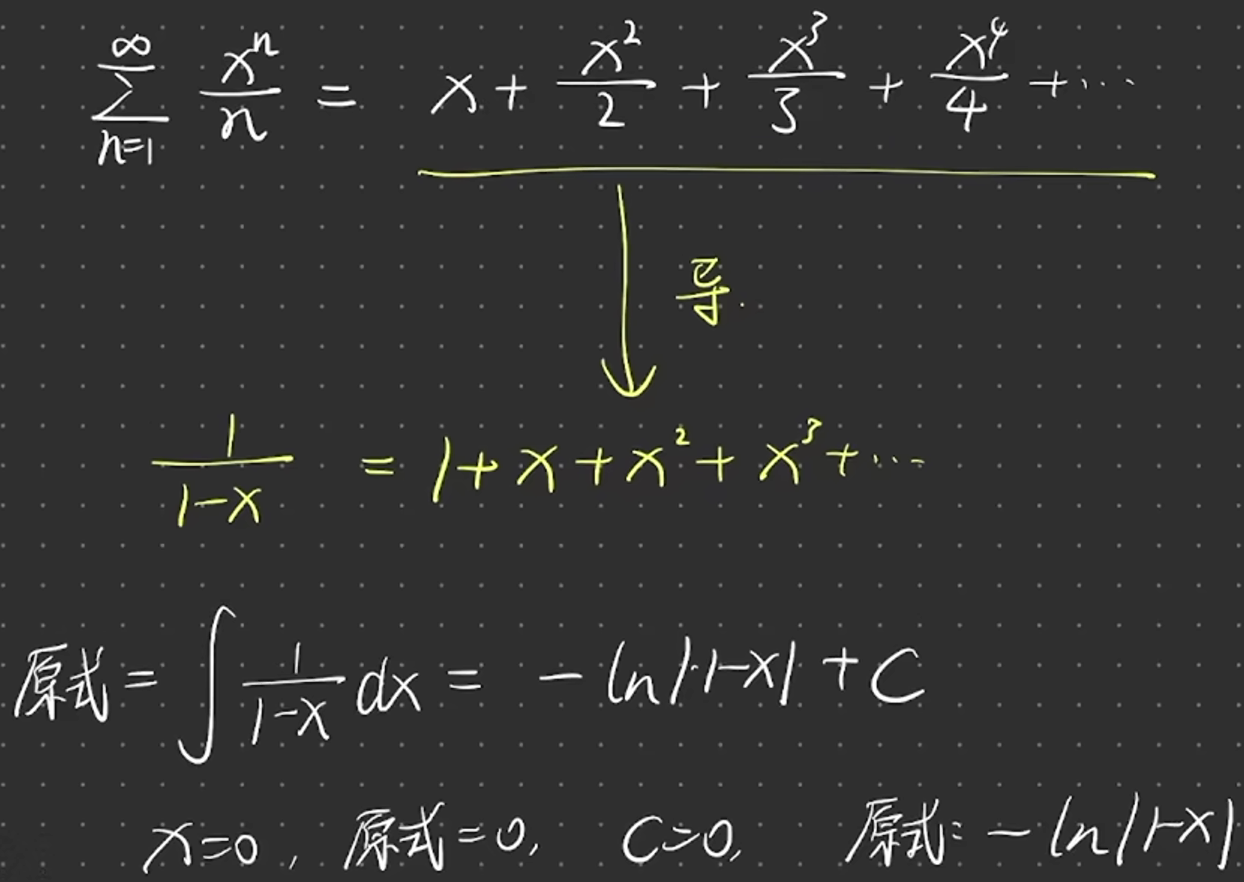 ∞∑n=1 xⁿ/n = x + x²/2 + x³/3 + x⁴/4 + ⋯
导.
1/(1-x) = 1 + x + x² + x³ + ⋯
原式 = ∫ 1/(1-x) dx = -ln|1-x| + C
x=0, 原式=0, C=0, 原式: -ln|1-x|